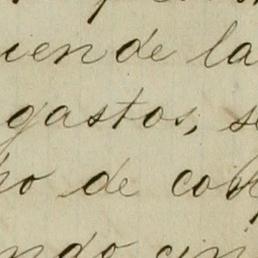 iende la
gastos, se
ho de cob
ndo cin